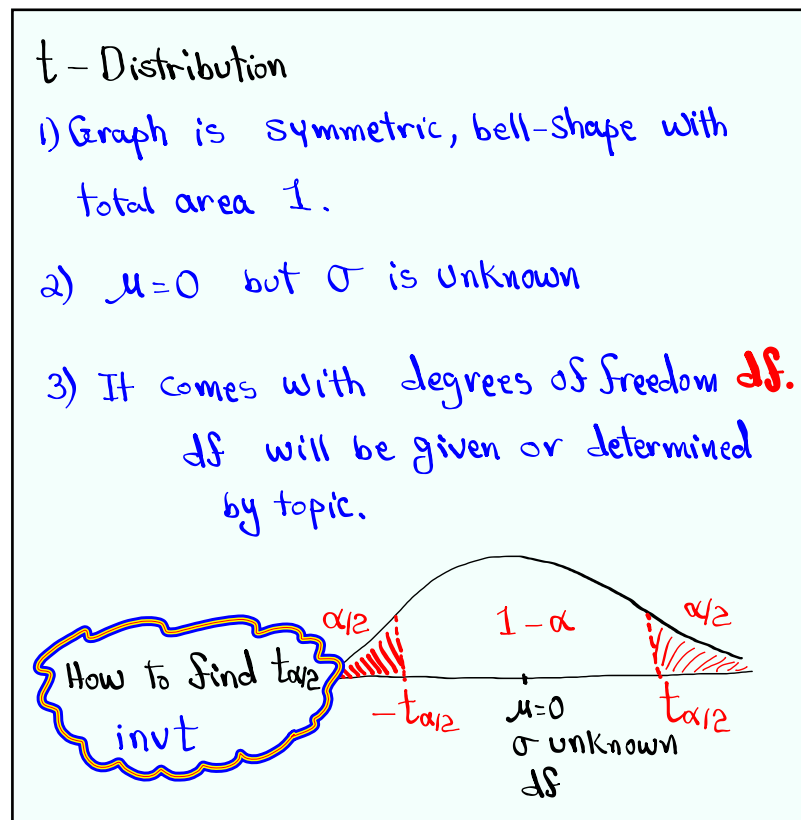 t - Distribution
1) Graph is symmetric, bell-shape with
total area 1.
2) μ=0 but σ is unknown
3) It comes with degrees of freedom df.
df will be given or determined
by topic.
α/2
1-α
α/2
How to find tα/2
invt
-tα/2
μ=0
tα/2
σ unknown
df